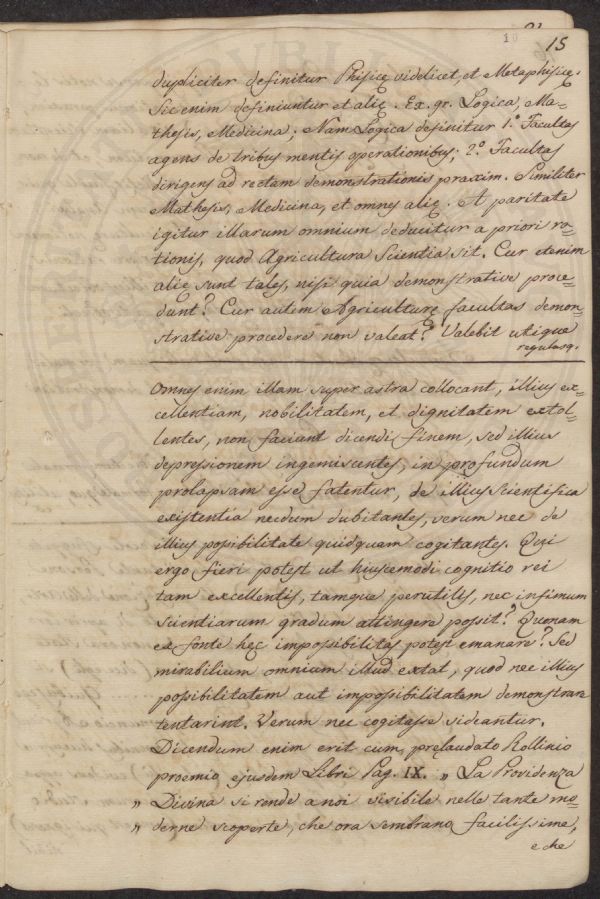 10 15
dupliciter definitur Phisicę videlicet, et Metaphisicę.
Sic enim definiuntur et alię. Ex. gr. Logica, Ma=
thesis, Medicina; Nam Logica definitur 1.º Facultas
agens de tribus mentis operationibus; 2.º Facultas
dirigens ad rectam demonstrationis praxim. Similiter
Mathesis, Medicina, et omnes alię. A paritate
igitur illarum omnium deducitur a priori ra=
tionis, quod Agricultura Scientia sit. Cur etenim
alię sunt tales, nisi quia demonstrative proce=
dunt? Cur autem Agriculturę facultas demon=
strative procedere non valeat? Valebit utique
regulasq.
Omnes enim illam super astra collocant, illius ex=
cellentiam, nobilitatem, et dignitatem extol=
lentes, non faciunt dicendi finem, sed illius
depressionem ingemiscentes, in profundum
prolapsam esse fatentur, de illius Scientifica
existentia necdum dubitantes, verum nec de
illius possibilitate quidquam cogitantes. Qui
ergo fieri potest ut huiuscemodi cognitio rei
tam excellentis, tamque perutilis, nec infimum
scientiarum gradum attingere possit? Quonam
ex fonte hęc impossibilitas potest emanare? Sed
mirabilium omnium illud extat, quod nec illius
possibilitatem aut impossibilitatem demonstrare
tentarint. Verum nec cogitasse videantur.
Dicendum enim erit cum pręlaudato Rollinio
proemio ejusdem Libri Pag. IX. „ La Providenza
„ Divina si rende a noi visibile nelle tante mo=
„ derne scoperte, che ora sembrano facilissime,
e che